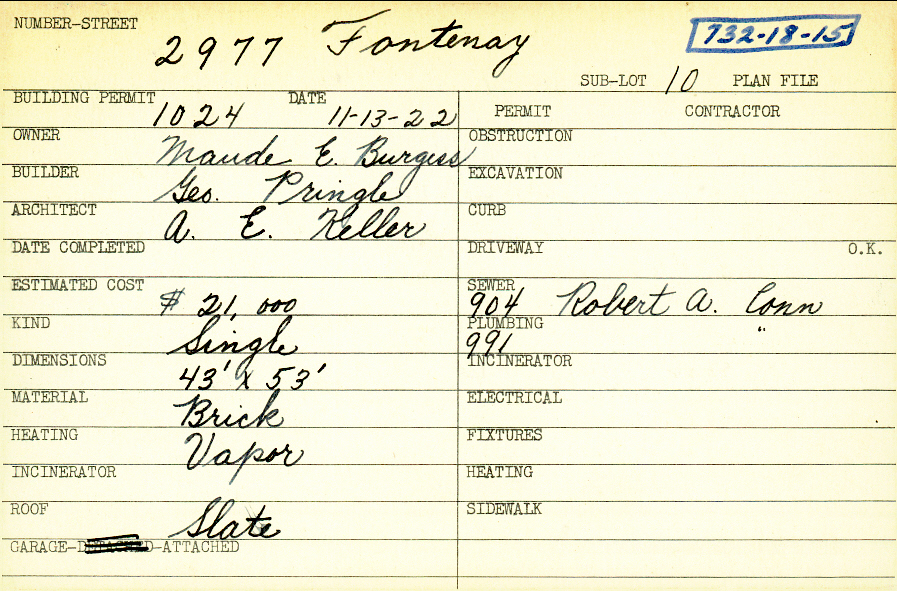 NUMBER-STREET
2977 Fontenay
732-18-15
SUB-LOT 10 PLAN FILE
BUILDING PERMIT 1024 DATE 11-13-22
PERMIT CONTRACTOR
OWNER Maude E. Burgess
OBSTRUCTION
BUILDER Geo. Pringle
EXCAVATION
ARCHITECT A. E. Keller
CURB
DATE COMPLETED
DRIVEWAY O.K.
ESTIMATED COST $ 21,000
SEWER 904 Robert A. Conn
KIND Single
PLUMBING 991 "
DIMENSIONS 43' x 53'
INCINERATOR
MATERIAL Brick
ELECTRICAL
HEATING Vapor
FIXTURES
INCINERATOR
HEATING
ROOF Slate
SIDEWALK
GARAGE-DETACHED-ATTACHED